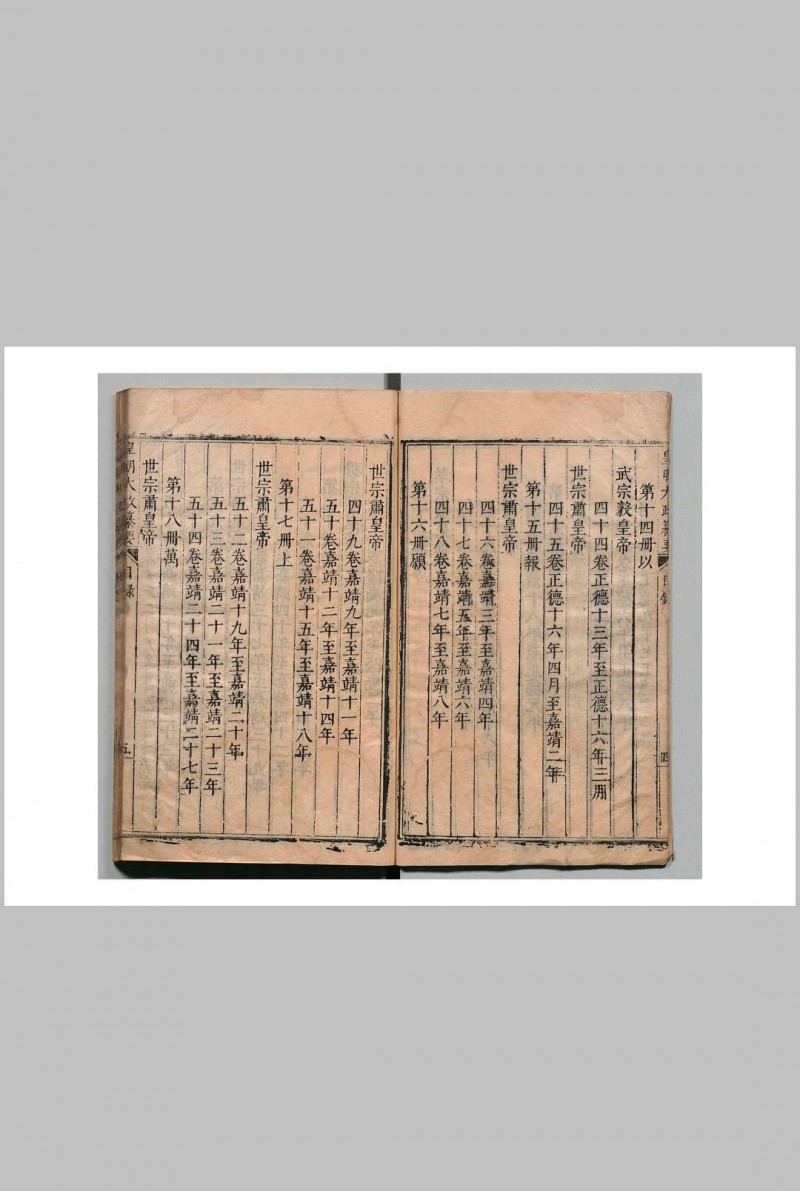 皇明大政纂要
目錄
四
第十四冊以
武宗毅皇帝
四十四卷正德十三年至正德十六年三月
世宗肅皇帝
四十五卷正德十六年四月至嘉靖二年
第十五冊報
世宗肅皇帝
四十六卷嘉靖三年至嘉靖四年
四十七卷嘉靖五年至嘉靖六年
四十八卷嘉靖七年至嘉靖八年
第十六冊願
世宗肅皇帝
四十九卷嘉靖九年至嘉靖十一年
五十卷嘉靖十二年至嘉靖十四年
五十一卷嘉靖十五年至嘉靖十八年
第十七冊上
世宗肅皇帝
五十二卷嘉靖十九年至嘉靖二十年
五十三卷嘉靖二十一年至嘉靖二十三年
五十四卷嘉靖二十四年至嘉靖二十七年
第十八冊萬
世宗肅皇帝
皇明大政纂要
目錄
五